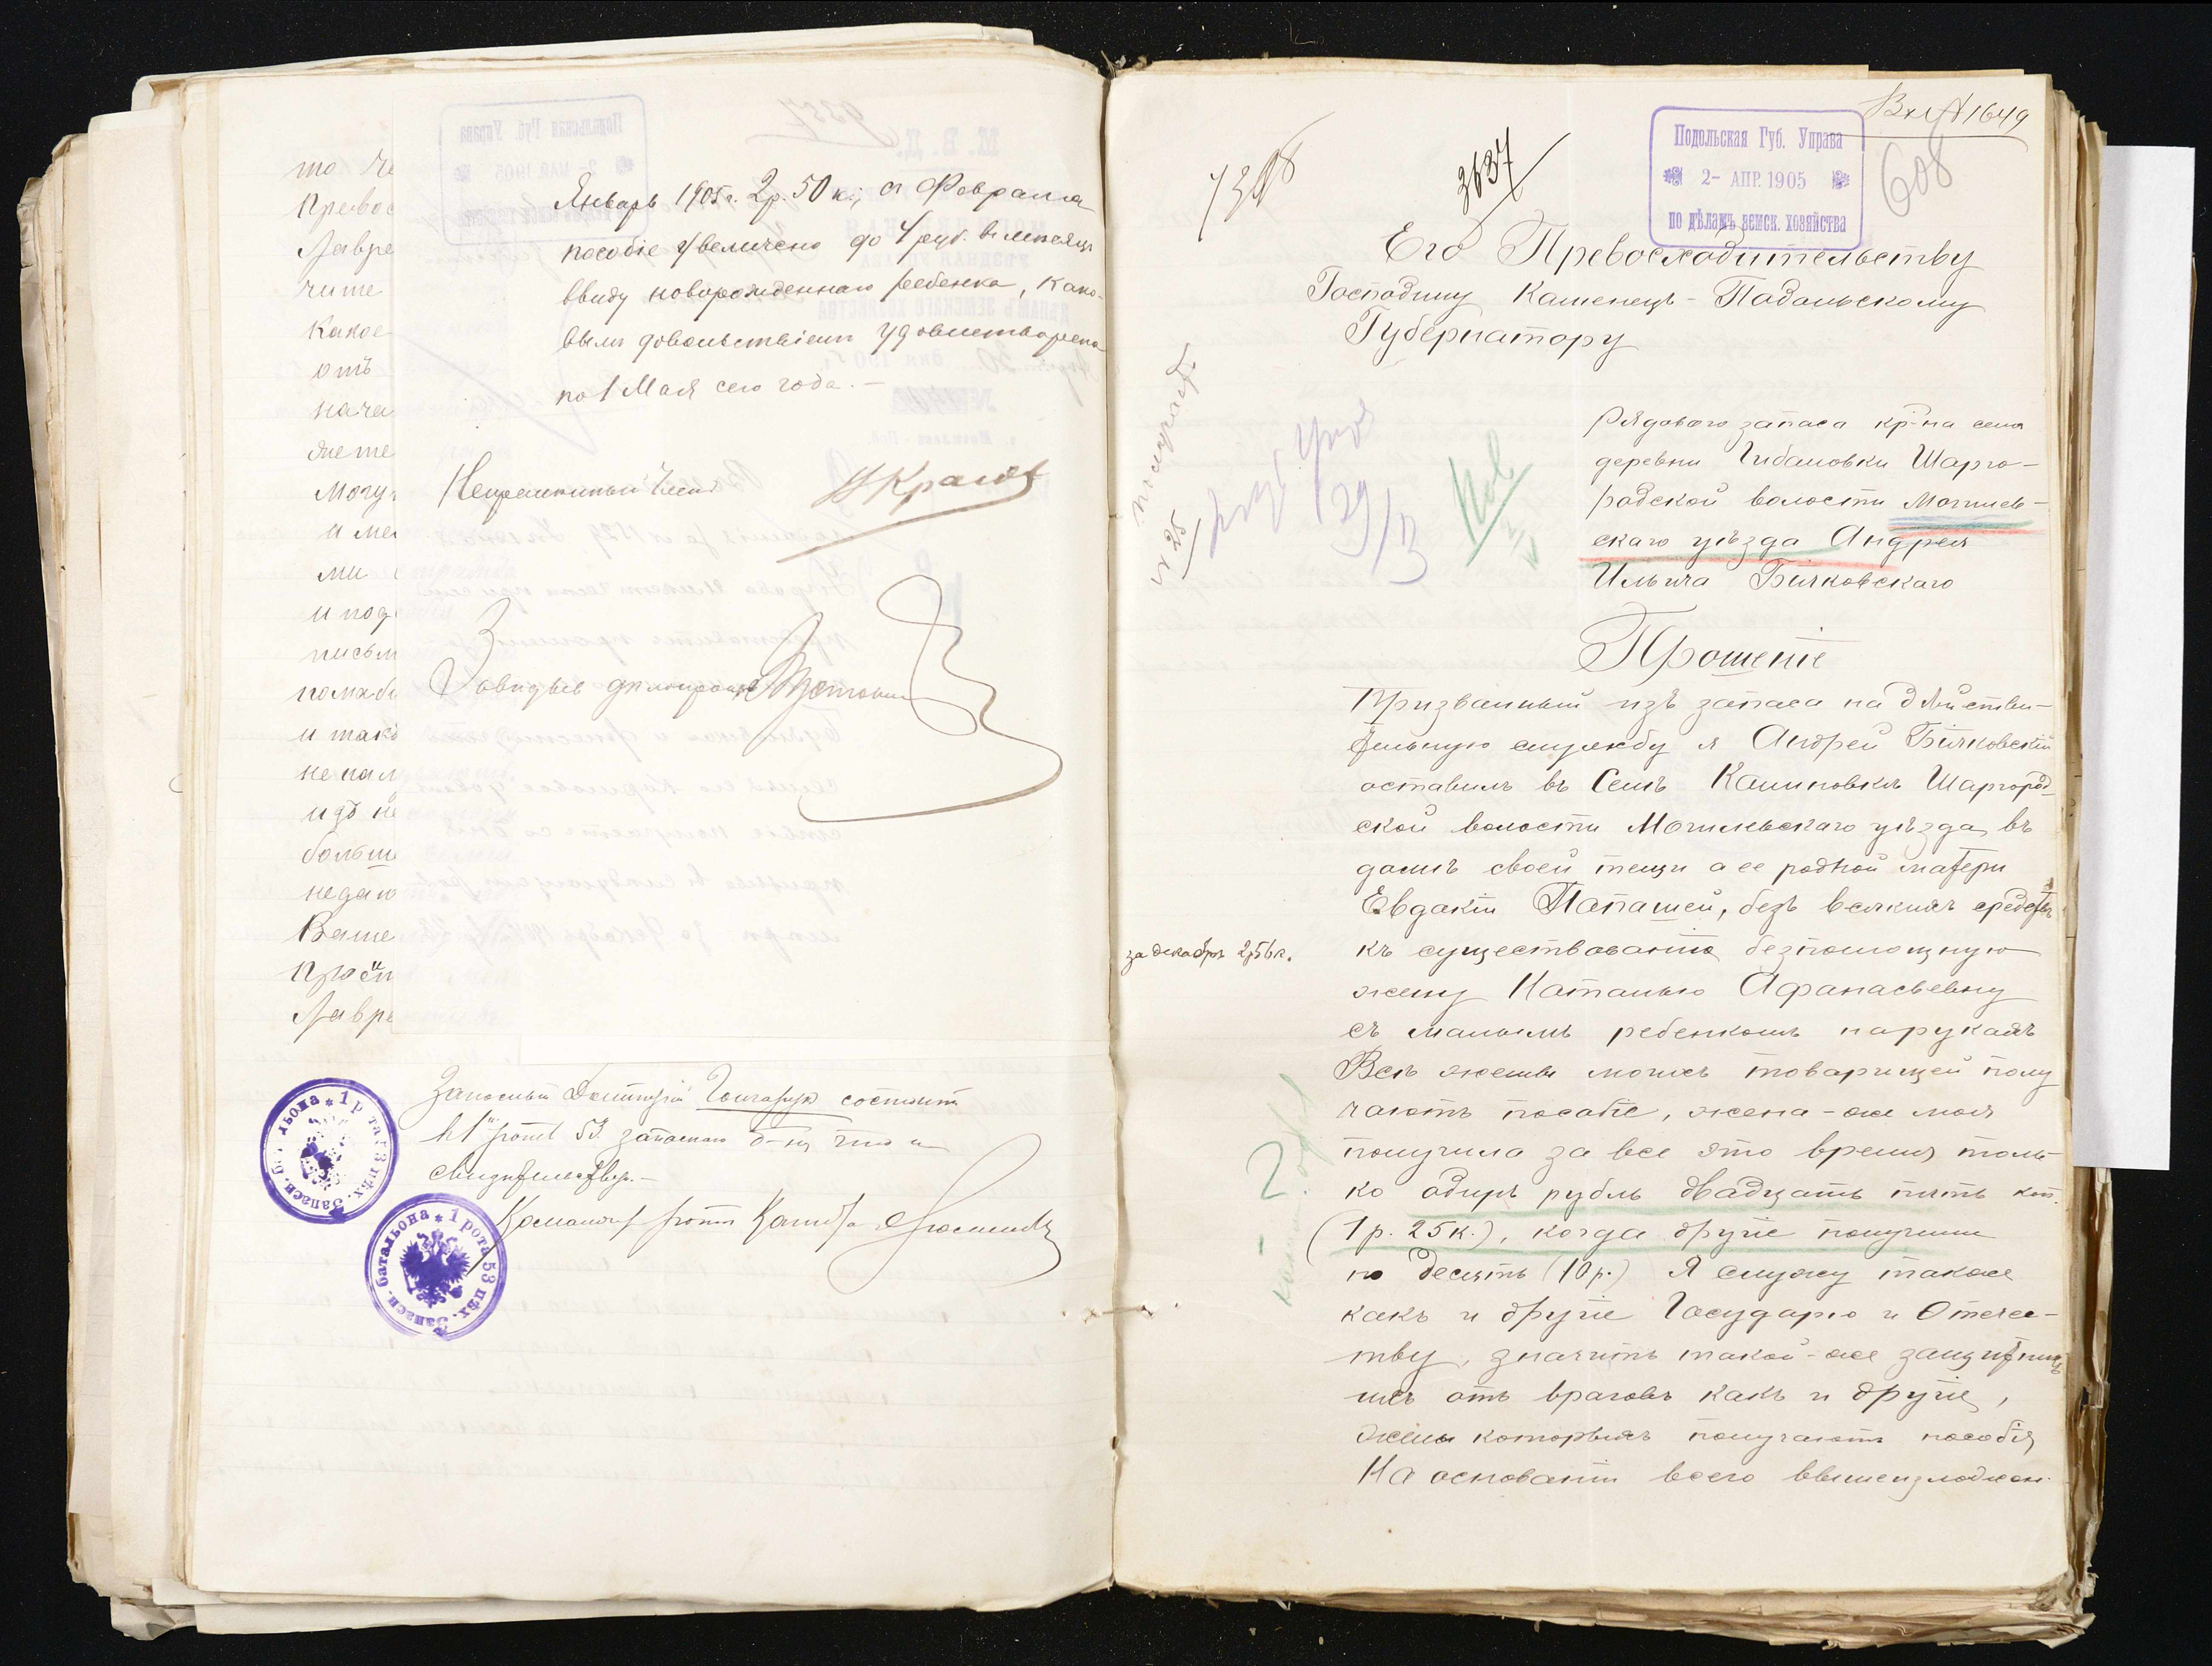 то
Превос
Лавре
чите
Какое
отъ
нача
же те
могу
и ме
ми
и под
письм
и такъ
больш
недаю
Ваше
Прось
Лавре
Январь 1905 г. 2 р. 50 к., а Февраля
пособіе увеличено до 4 руб. въ месяцъ
ввиду новорожденнаго ребенка, како-
вымъ довольствіемъ удовлетворена
по 1 Мая сего года. —
Непременный Членъ
Завидывъ
Запасный Дмитрій Гончарук состоитъ
въ 1й ротѣ 53 запаснаго б-на что и
свидѣтельствую. —
Командиръ роты Капит
1 рота 53 пѣх. Запасн. батальона
1 рота 53 пѣх. Запасн. батальона
Вх № 1649
608
3637
Подольская Губ. Управа
2- АПР. 1905
по дѣламъ земск. хозяйства
Его Превосходительству
Господину Каменецъ-Подольскому
Губернатору
Рядового запаса кр-на села
деревни Гибаловки Шарго-
родской волости Могилев-
скаго уѣзда Андрея
Ильича Бѣлковскаго
29/3
№ 25
Прошеніе
Призванный изъ запаса на дѣйстви-
тельную службу я Андрей Бѣлковскій
оставилъ въ Селѣ Калиновкѣ Шаргород-
ской волости Могилевскаго уѣзда, въ
домѣ своей тещи а ее родной матери
Евдакіи Папашей, безъ всякихъ средствъ
къ существованію безпомощную
жену Наталью Афанасьевну
съ малымъ ребенкомъ нарукахъ
Всѣ жены моихъ товарищей полу
чаютъ пособіе, жена-же моя
получила за все это время толь-
ко одинъ рубль двадцать пять коп.
(1 р. 25 к.), когда другіе получили
по десять (10 р.) Я служу также
какъ и другіе Государю и Отечес-
тву, значитъ такой-же защитникъ
ихъ отъ враговъ какъ и другіе,
жены которыхъ получаютъ пособія
На основаніи всего вышеизложен.
за декабрь 2 р 56 к.